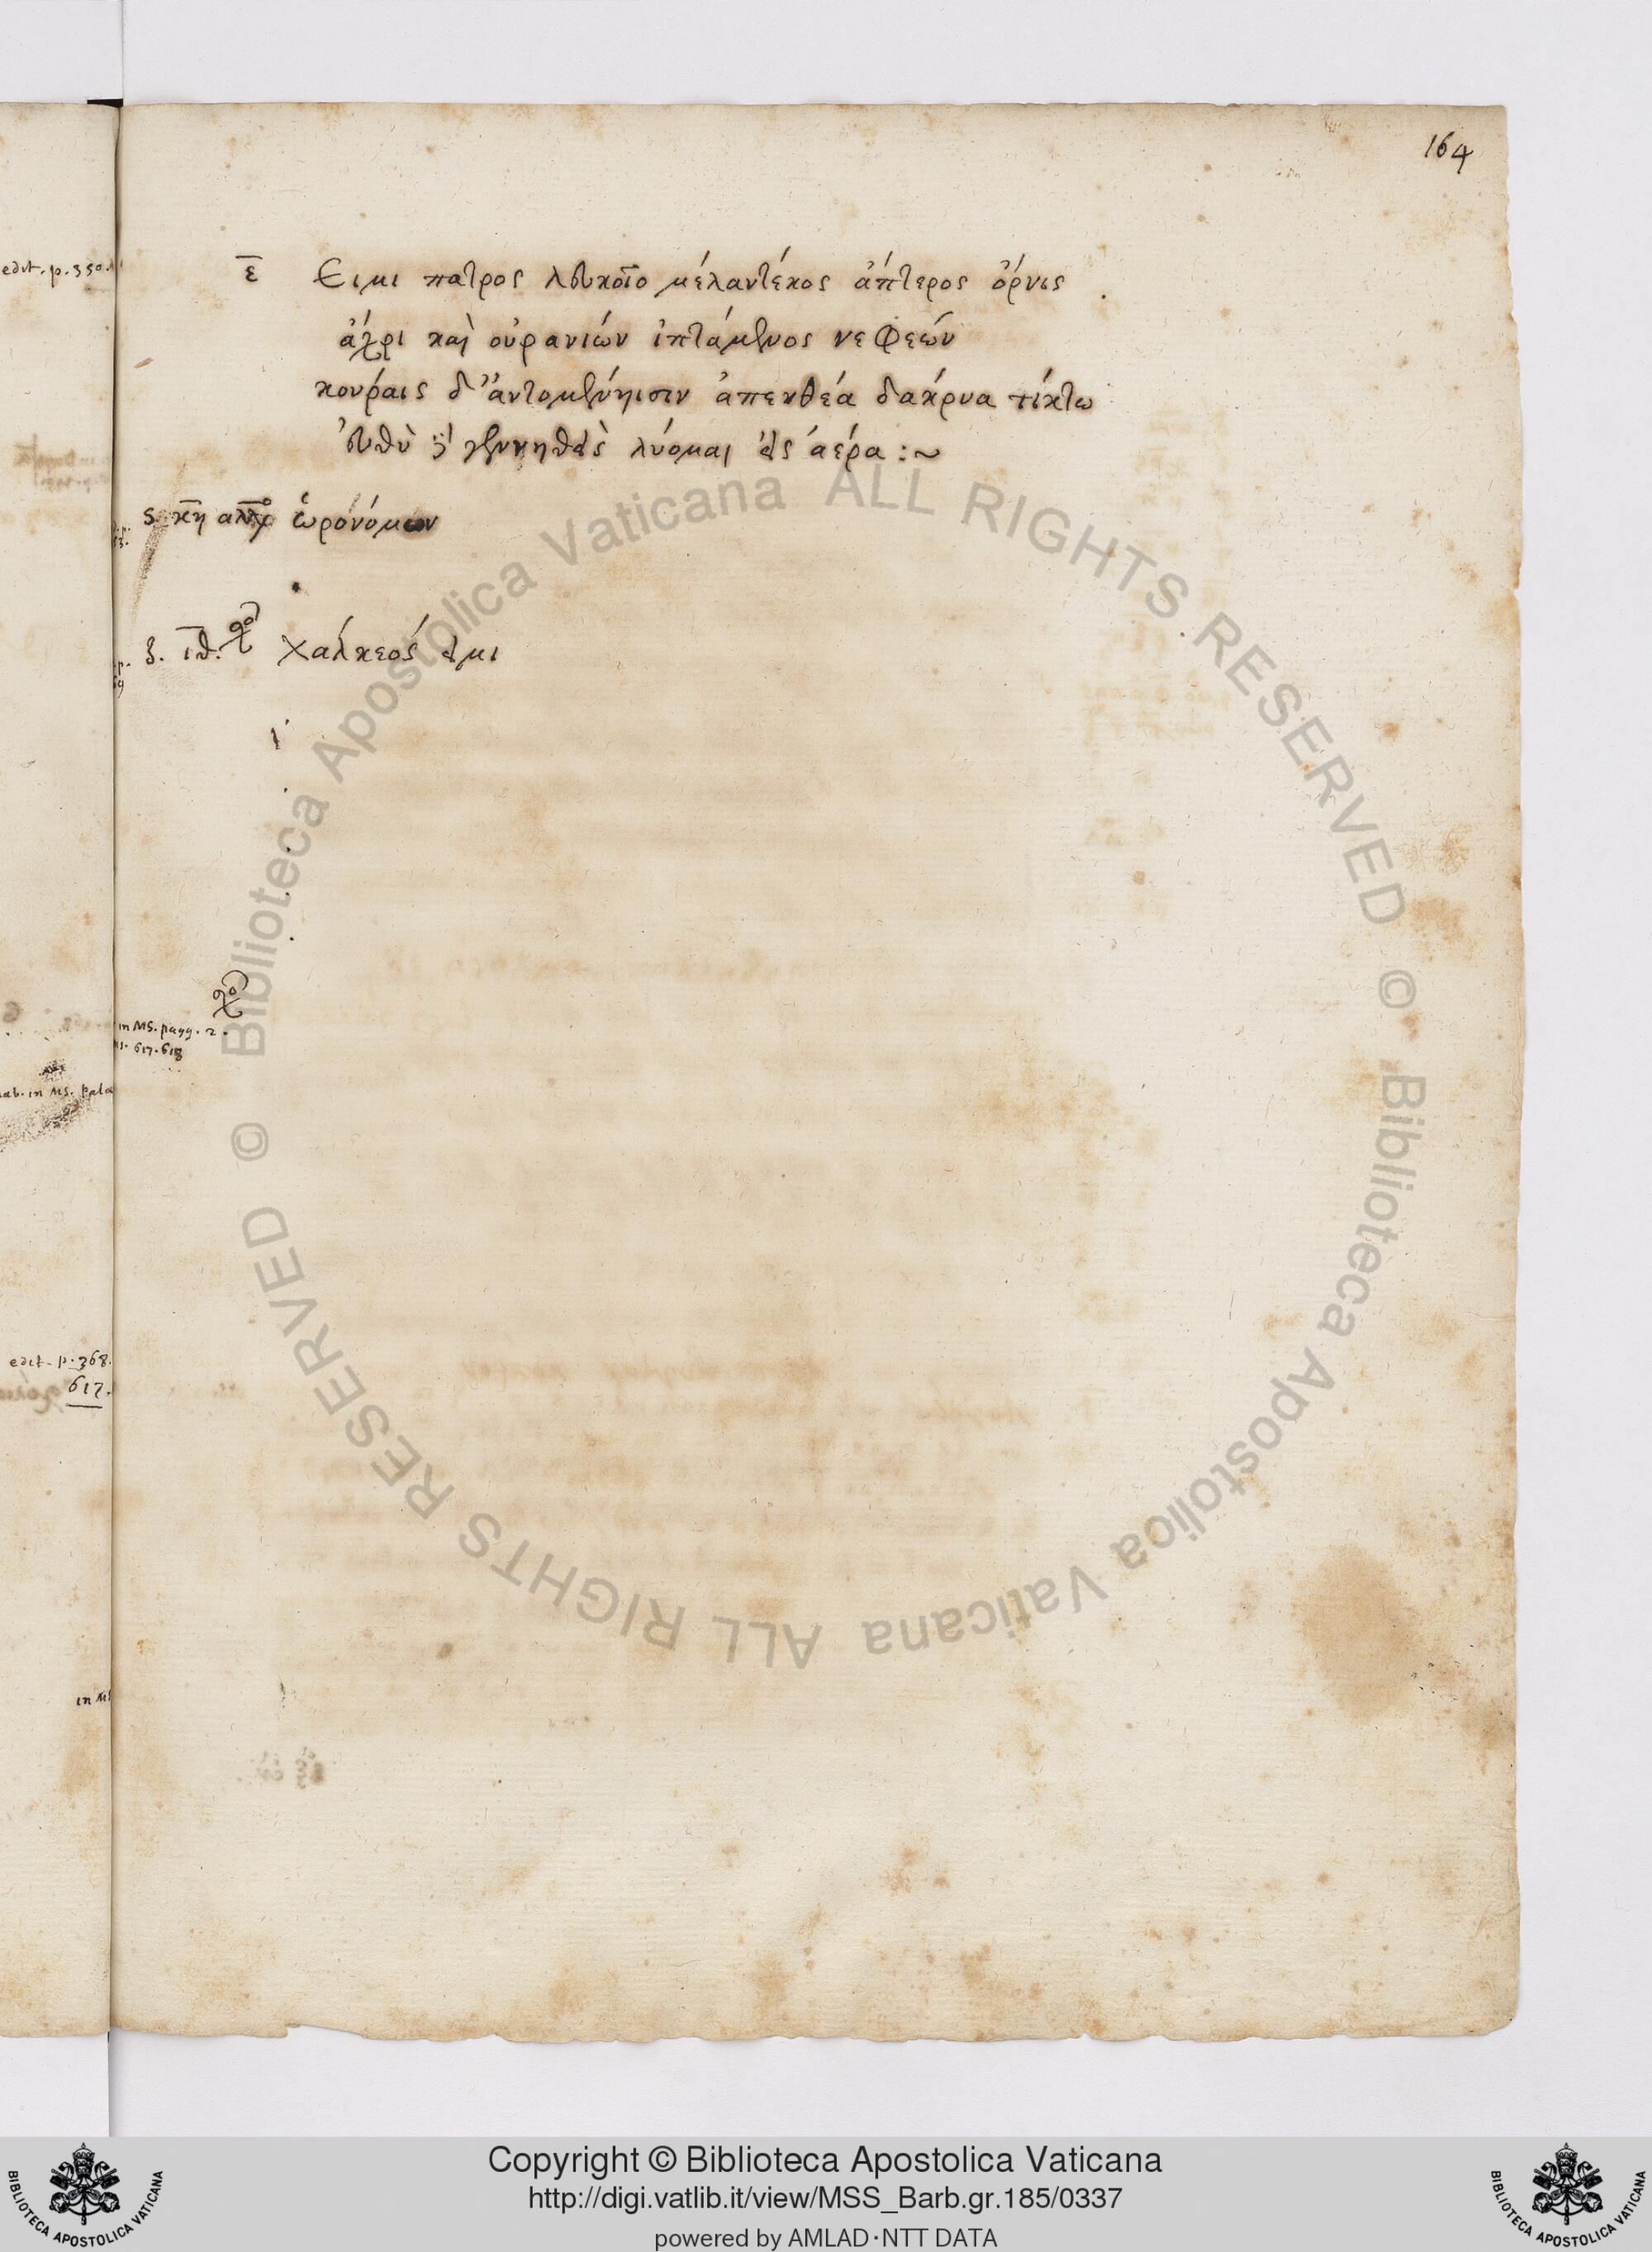 164
edit. p. 350.
ε̅ Ειμι πατρος λευκοῖο μέλαν τέκος ἄπτερος ὄρνις
ἄχρι καὶ οὐρανιών ἱπτάμενος νεφεών
κουράις δ' ἀντομένηισιν ἀπενθέα δακρυα τίκτω
ἐυθὺ δὲ γεννηθεὶς λύομαι εἰς ἀέρα :~
ς. κη ὡρονόμων
ιθ. Χαλκεός ειμι
in MS. pagg. 2.
617. 618
in MS. pala
edit. p. 368.
617.
in MS
© Biblioteca Apostolica Vaticana ALL RIGHTS RESERVED © Biblioteca Apostolica Vaticana ALL RIGHTS RESERVED
BIBLIOTECA APOSTOLICA VATICANA
Copyright © Biblioteca Apostolica Vaticana
http://digi.vatlib.it/view/MSS_Barb.gr.185/0337
powered by AMLAD·NTT DATA
BIBLIOTECA APOSTOLICA VATICANA